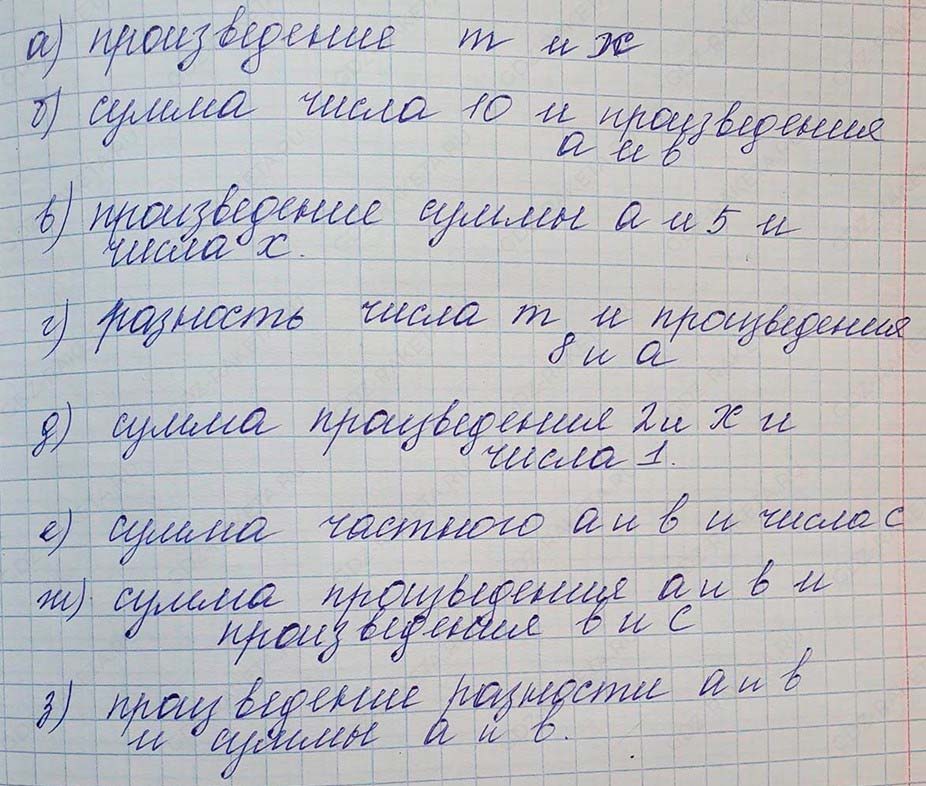 а) произведение m и x
б) сумма числа 10 и произведения
a и b
в) произведение суммы a и 5 и
числа x.
г) разность числа m и произведения
8 и a
д) сумма произведения 2 и x и
числа 1.
е) сумма частного a и b и числа c
ж) сумма произведения a и b и
произведения b и c
з) произведение разности a и b
и суммы a и b.